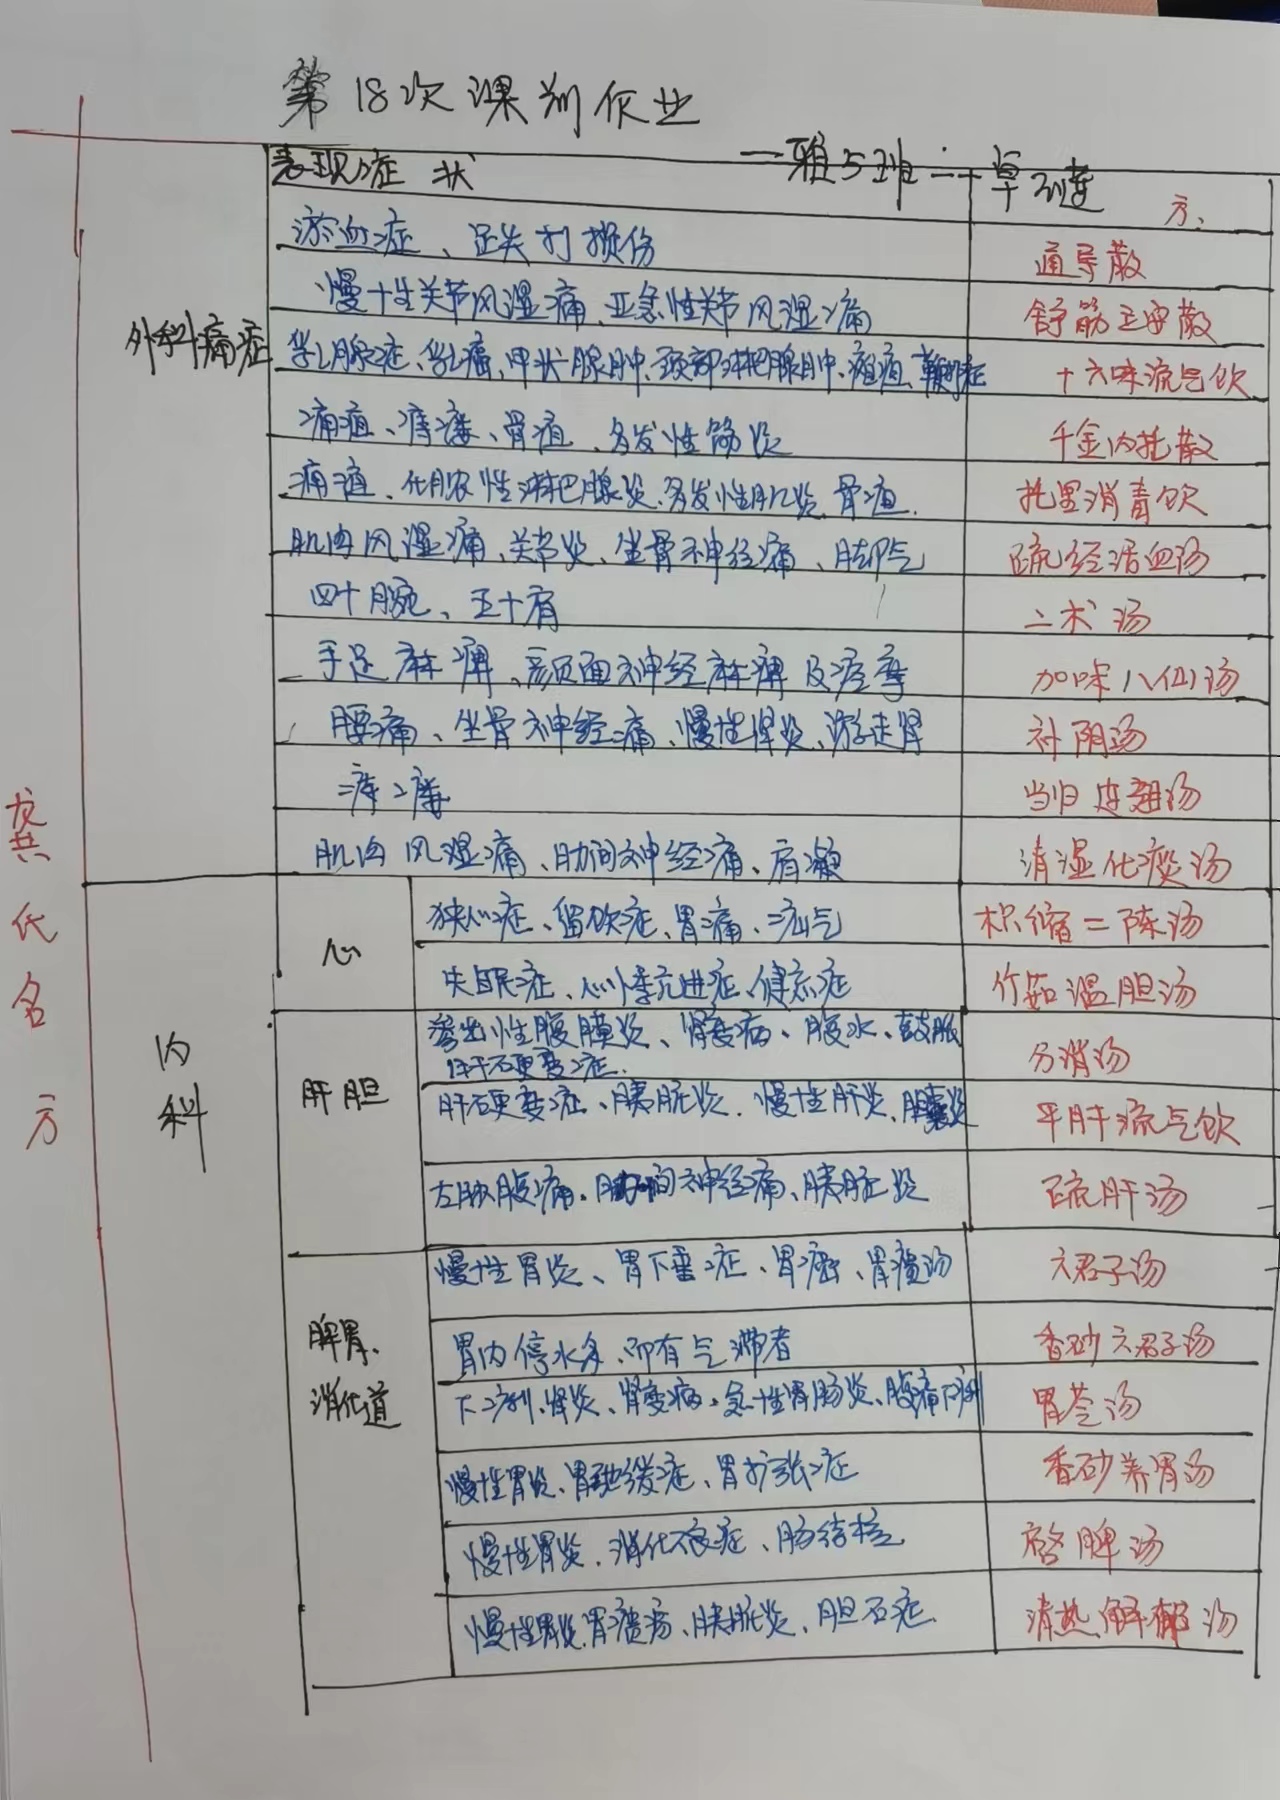 第18次课别作业
一雅5班:
表现症状
方:
淤血症、跌打损伤 通导散
慢性关节风湿痛、亚急性关节风湿痛 舒筋立安散
外科痛症
乳腺症、乳癌、甲状腺肿、颈部淋巴腺肿、瘟疽 十六味流气饮
痈疽、痔瘘、骨疽、多发性筋炎 千金内托散
痈疽、化脓性淋巴腺炎、多发性肌炎、骨疽. 托里消毒饮
肌肉风湿痛、关节炎、坐骨神经痛、脚气 疏经活血汤
四十腕、五十肩 二术汤
手足麻痹、颜面神经麻痹及痉挛 加味八仙汤
腰痛、坐骨神经痛、慢性肾炎、游走肾 补阴汤
痔瘘 当归连翘汤
肌肉风湿痛、肋间神经痛、肩凝 清湿化痰汤
龚氏名方
内科
心
狭心症、留饮症、胃痛、疝气 枳缩二陈汤
失眠症、心悸亢进症、健忘症 竹茹温胆汤
肝胆
渗出性腹膜炎、肾变病、腹水、鼓胀 分消汤
肝硬变症.
肝硬变症、胰脏炎、慢性肝炎、胆囊炎 平肝流气饮
左胁腹痛、肋间神经痛、胰脏炎 疏肝汤
脾胃、
消化道
慢性胃炎、胃下垂症、胃癌、胃溃汤 六君子汤
胃内停水多、而有气滞者 香砂六君子汤
下痢、肾炎、肾变病、急性胃肠炎、腹痛下痢 胃苓汤
慢性胃炎、胃弛缓症、胃扩张症 香砂养胃汤
慢性胃炎、消化不良症、肠结核 启脾汤
慢性胃炎、胃溃疡、胰脏炎、胆石症 清热解郁汤